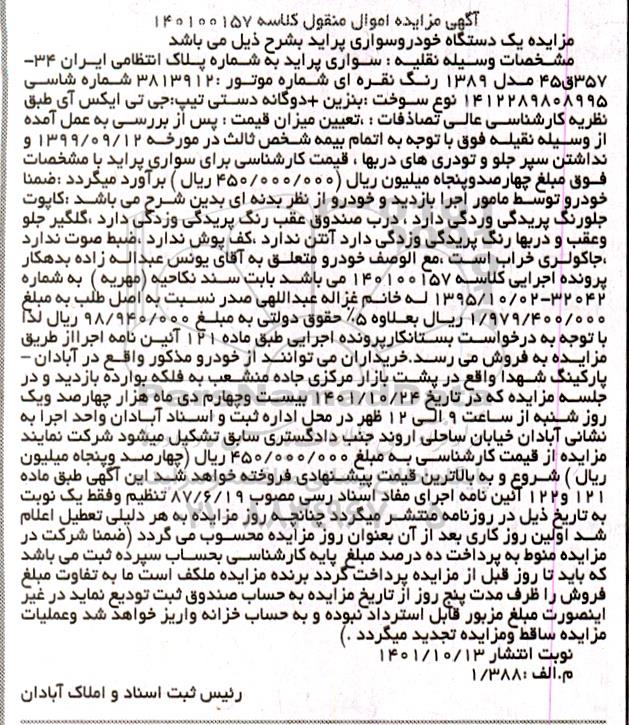 آگهی مزایده اموال منقول کلاسه ۱۴۰۱۰۰۱۵۷
مزایده یک دستگاه خودروسواری پراید بشرح ذیل می باشد
مشخصات وسیله نقلیه : سواری پراید به شماره پلاک انتظامی ایران ۳۴-
۳۵۷ق۴۵ مدل ۱۳۸۹ رنگ نقره ای شماره موتور :۳۸۱۳۹۱۲ شماره شاسی
۱۴۱۲۲۸۹۸۰۸۹۹۵ نوع سوخت :بنزین +دوگانه دستی تیپ:جی تی ایکس آی طبق
نظریه کارشناسی عالی تصادفات : ،تعیین میزان قیمت : پس از بررسی به عمل آمده
از وسیله نقلیه فوق با توجه به اتمام بیمه شخص ثالث در مورخه ۱۳۹۹/۰۹/۱۲ و
نداشتن سپر جلو و تودری های دربها ، قیمت کارشناسی برای سواری پراید با مشخصات
فوق مبلغ چهارصدوپنجاه میلیون ریال (۴۵۰/۰۰۰/۰۰۰ ریال ) برآورد میگردد :ضمنا
خودرو توسط مامور اجرا بازدید و خودرو از نظر بدنه ای بدین شرح می باشد :کاپوت
جلورنگ پریدگی وزدگی دارد ، درب صندوق عقب رنگ پریدگی وزدگی دارد ،گلگیر جلو
وعقب و دربها رنگ پریدگی وزدگی دارد آنتن ندارد ،کف پوش ندارد ،ضبط صوت ندارد
،جاکولری خراب است ،مع الوصف خودرو متعلق به آقای یونس عبداله زاده بدهکار
پرونده اجرایی کلاسه ۱۴۰۱۰۰۱۵۷ می باشد بابت سند نکاحیه (مهریه ) به شماره
۳۲۰۴۲-۱۳۹۵/۱۰/۰۲ له خانم غزاله عبداللهی صدر نسبت به اصل طلب به مبلغ
۱/۹۷۹/۴۰۰/۰۰۰ ریال بعلاوه ۵٪ حقوق دولتی به مبلغ ۹۸/۹۴۰/۰۰۰ ریال لذا
با توجه به درخواست بستانکارپرونده اجرایی طبق ماده ۱۲۱ آئین نامه اجرااز طریق
مزایده به فروش می رسد.خریداران می توانند از خودرو مذکور واقع در آبادان –
پارکینگ شهدا واقع در پشت بازار مرکزی جاده منشعب به فلکه یوارده بازدید و در
جلسه مزایده که در تاریخ ۱۴۰۱/۱۰/۲۴ بیست وچهارم دی ماه هزار چهارصد ویک
روز شنبه از ساعت ۹ الی ۱۲ ظهر در محل اداره ثبت و اسناد آبادان واحد اجرا به
نشانی آبادان خیابان ساحلی اروند جنب دادگستری سابق تشکیل میشود شرکت نمایند
مزایده از قیمت کارشناسی به مبلغ ۴۵۰/۰۰۰/۰۰۰ ریال (چهارصد وپنجاه میلیون
ریال ) شروع و به بالاترین قیمت پیشنهادی فروخته خواهد شد این آگهی طبق ماده
۱۲۱ و۱۲۲ آئین نامه اجرای مفاد اسناد رسی مصوب ۸۷/۶/۱۹ تنظیم وفقط یک نوبت
به تاریخ ذیل در روزنامه منتشر میگردد چنانچه روز مزایده به هر دلیلی تعطیل اعلام
شد اولین روز کاری بعد از آن بعنوان روز مزایده محسوب می گردد (ضمنا شرکت در
مزایده منوط به پرداخت ده درصد مبلغ پایه کارشناسی بحساب سپرده ثبت می باشد
که باید تا روز قبل از مزایده پرداخت گردد برنده مزایده ملکف است ما به تفاوت مبلغ
فروش را ظرف مدت پنج روز از تاریخ مزایده به حساب صندوق ثبت تودیع نماید در غیر
اینصورت مبلغ مزبور قابل استرداد نبوده و به حساب خزانه واریز خواهد شد وعملیات
مزایده ساقط ومزایده تجدید میگردد .)
نوبت انتشار ۱۴۰۱/۱۰/۱۳
م.الف :۱/۳۸۸
رئیس ثبت اسناد و املاک آبادان